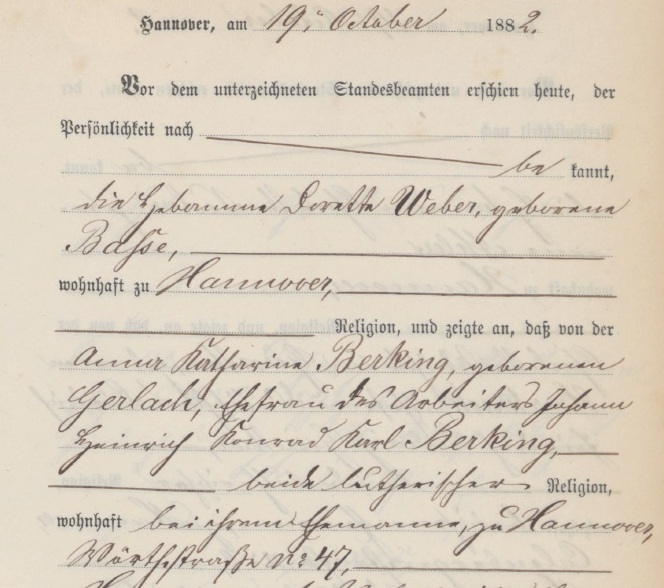 Hannover, am 19. October 1882.
Vor dem unterzeichneten Standesbeamten erschien heute, der
Persönlichkeit nach
be kannt,
die Hebamme Dorette Weber, geborene
Basse,
wohnhaft zu Hannover,
Religion, und zeigte an, daß von der
Anna Katharine Berking, geborenen
Gerlach, Ehefrau des Arbeiters Johann
Heinrich Konrad Karl Berking,
beide lutherischer Religion,
wohnhaft bei ihrem Ehemanne, zu Hannover,
Wörthstraße No 47,